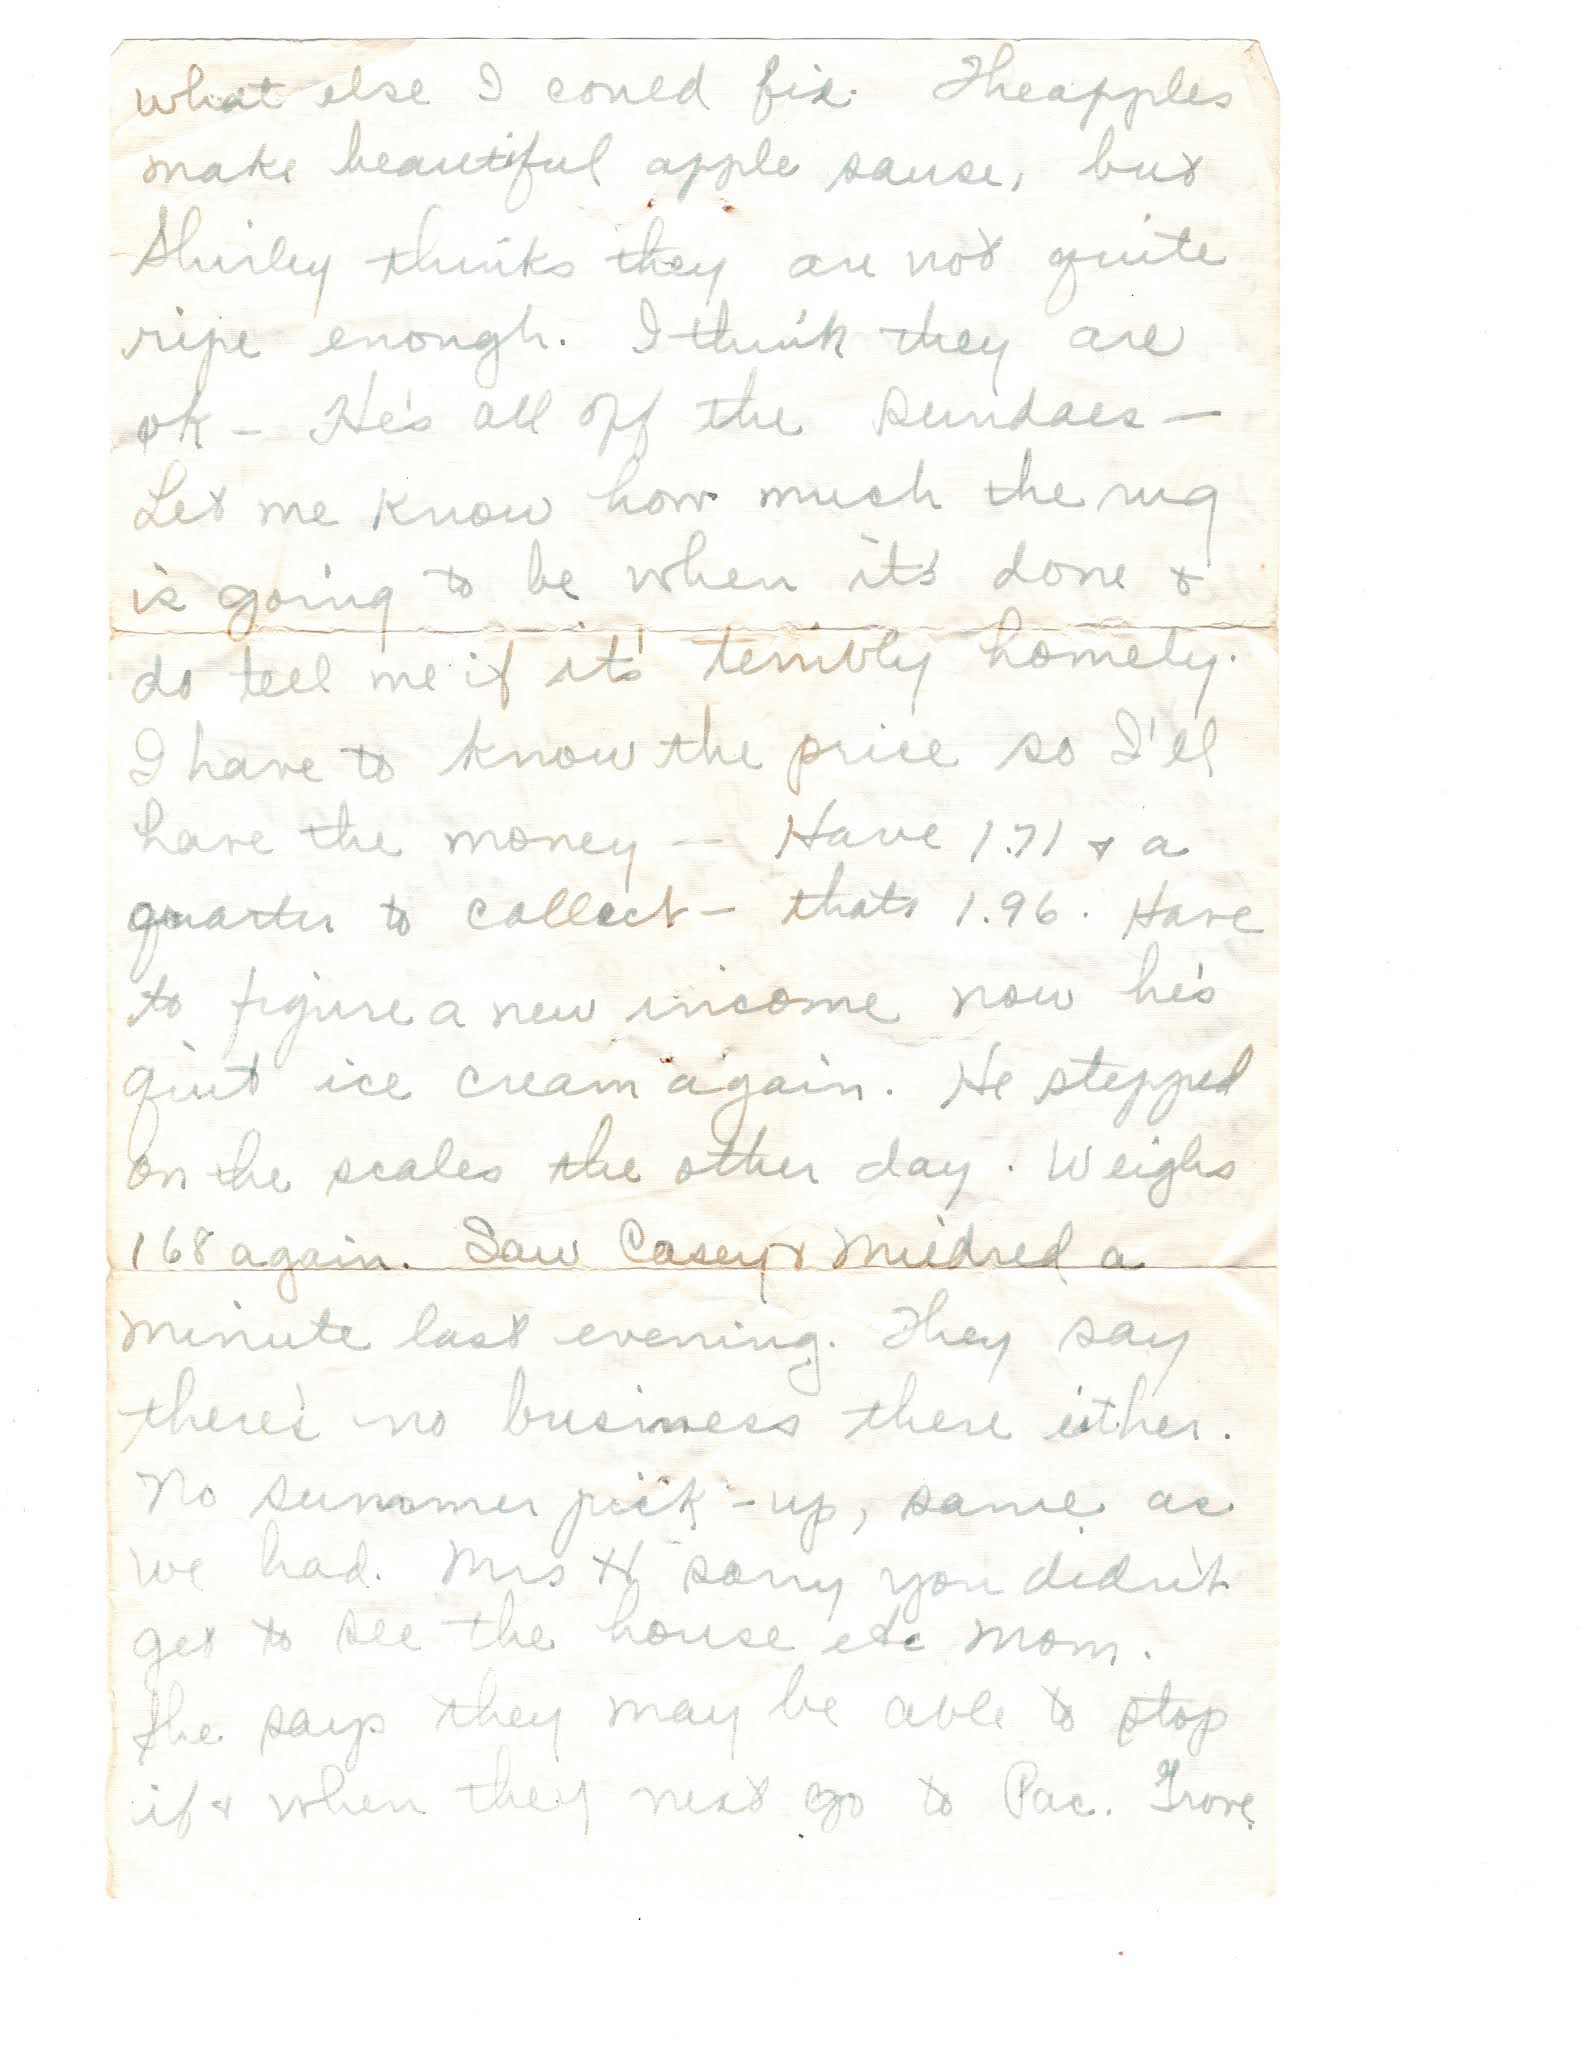 what else I could fix. The apples
make beautiful apple sause, but
Shirley thinks they are not quite
ripe enough. I think they are
ok – He's all off the sundaes –
Let me know how much the rug
is going to be when it's done &
do tell me if it's terribly homely.
I have to know the price so I'll
have the money – Have 1.71 & a
quarter to collect – thats 1.96. Have
to figure a new income now he's
quit ice cream again. He stepped
on the scales the other day. Weighs
168 again. Saw Casey & Mildred a
minute last evening. They say
there's no business there either.
No summer pick-up, same as
we had. Mrs H sorry you didn't
get to see the house etc Mom.
She says they may be able to stop
if & when they next go to Pac. Grove.